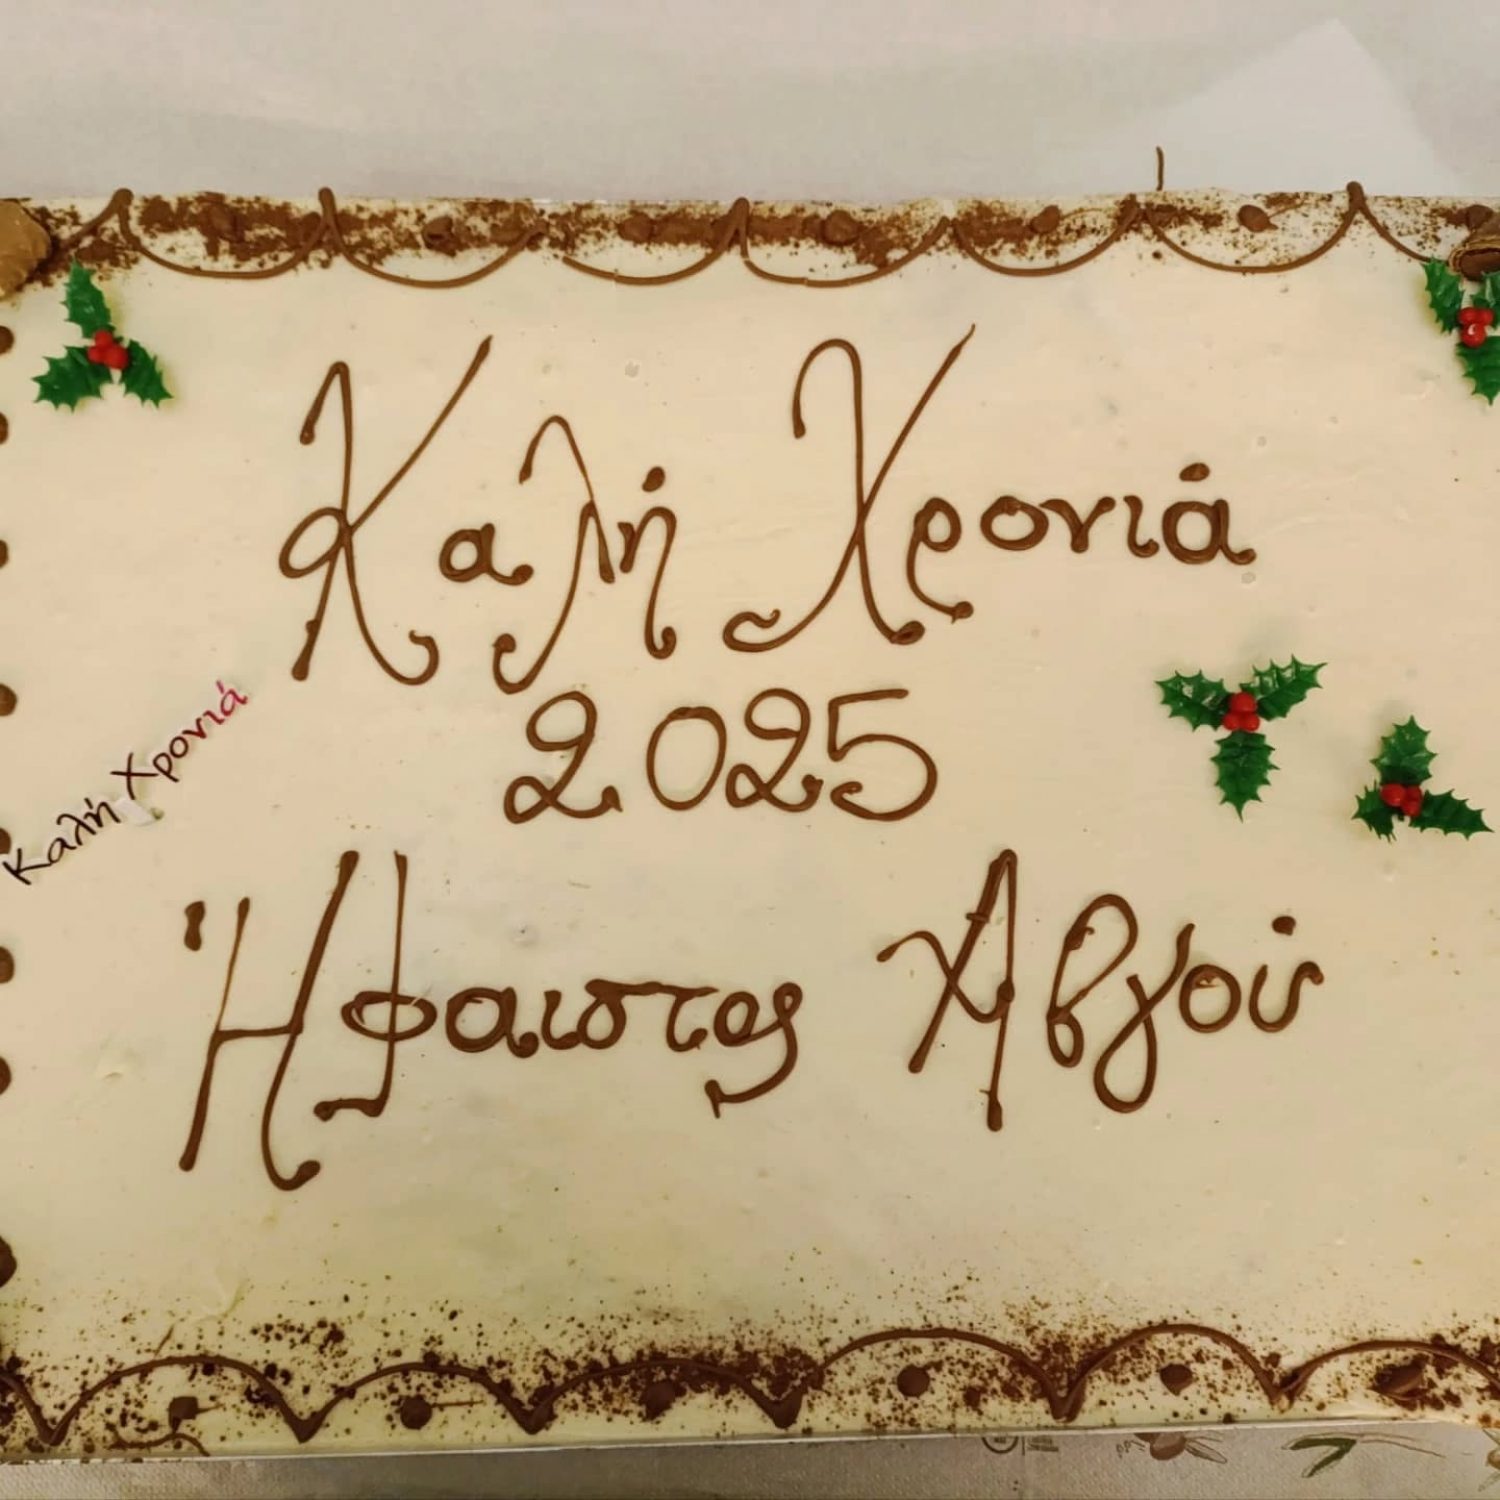 Καλή Χρονιά
2025
Καλή Χρονιά
Ήφαιστος Αβγού